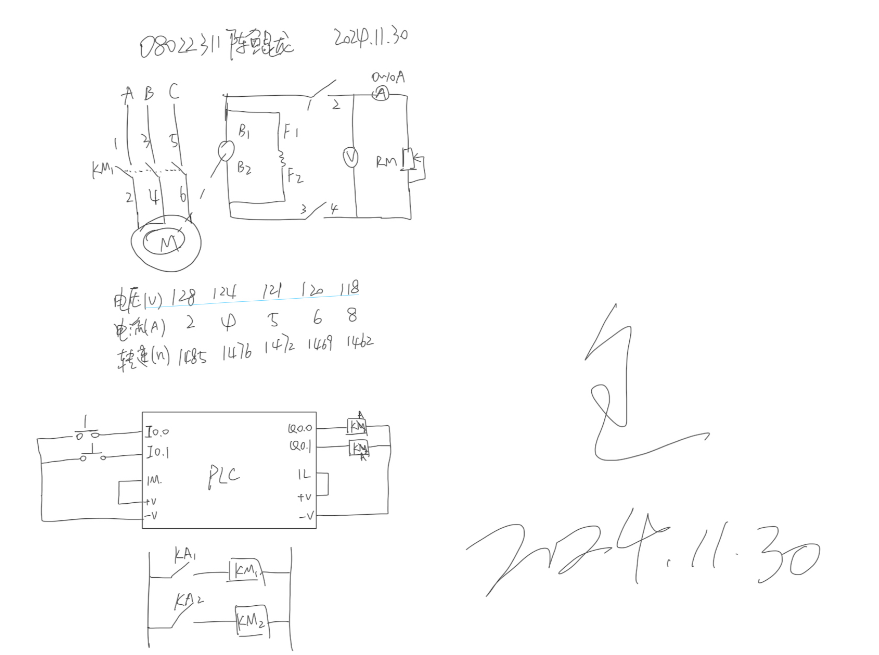 08022311 陈鲲龙 2024.11.30
A B C
1 3 5
KM1
2 4 6
M
B1
B2
F1
F2
1 2
3 4
0~10A
A
V
RM
电压(V) 128 124 121 120 118
电流(A) 2 4 5 6 8
转速(n) 1485 1476 1472 1469 1462
I0.0
I0.1
1M
+V
-V
PLC
Q0.0
Q0.1
1L
+V
-V
KM
A
KM
A
KA1 KM1
KA2 KM2
2024.11.30